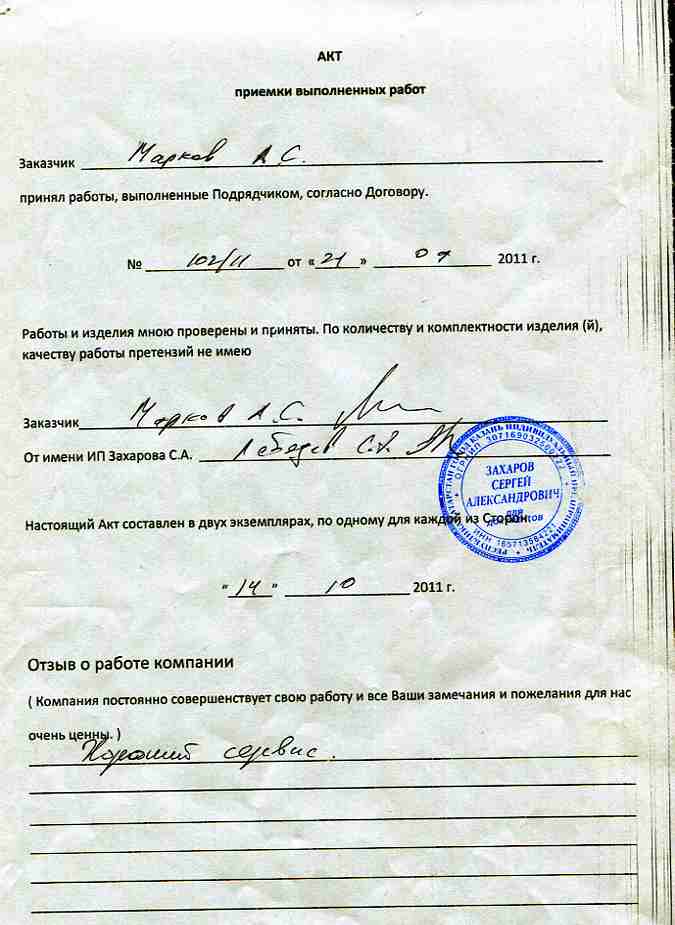 АКТ
приемки выполненных работ
Заказчик Марков А.С.
принял работы, выполненные Подрядчиком, согласно Договору.
№ 102/11 от «21» 07 2011 г.
Работы и изделия мною проверены и приняты. По количеству и комплектности изделия (й),
качеству работы претензий не имею
Заказчик Марков А.С.
От имени ИП Захарова С.А. Лебедев С.А.
РЕСПУБЛИКА ТАТАРСТАН ГОРОД КАЗАНЬ ИНДИВИДУАЛЬНЫЙ ПРЕДПРИНИМАТЕЛЬ
ЗАХАРОВ
СЕРГЕЙ
АЛЕКСАНДРОВИЧ
для
Настоящий Акт составлен в двух экземплярах, по одному для каждой из Сторон.
"14" 10 2011 г.
Отзыв о работе компании
( Компания постоянно совершенствует свою работу и все Ваши замечания и пожелания для нас
очень ценны. )
Хороший сервис.